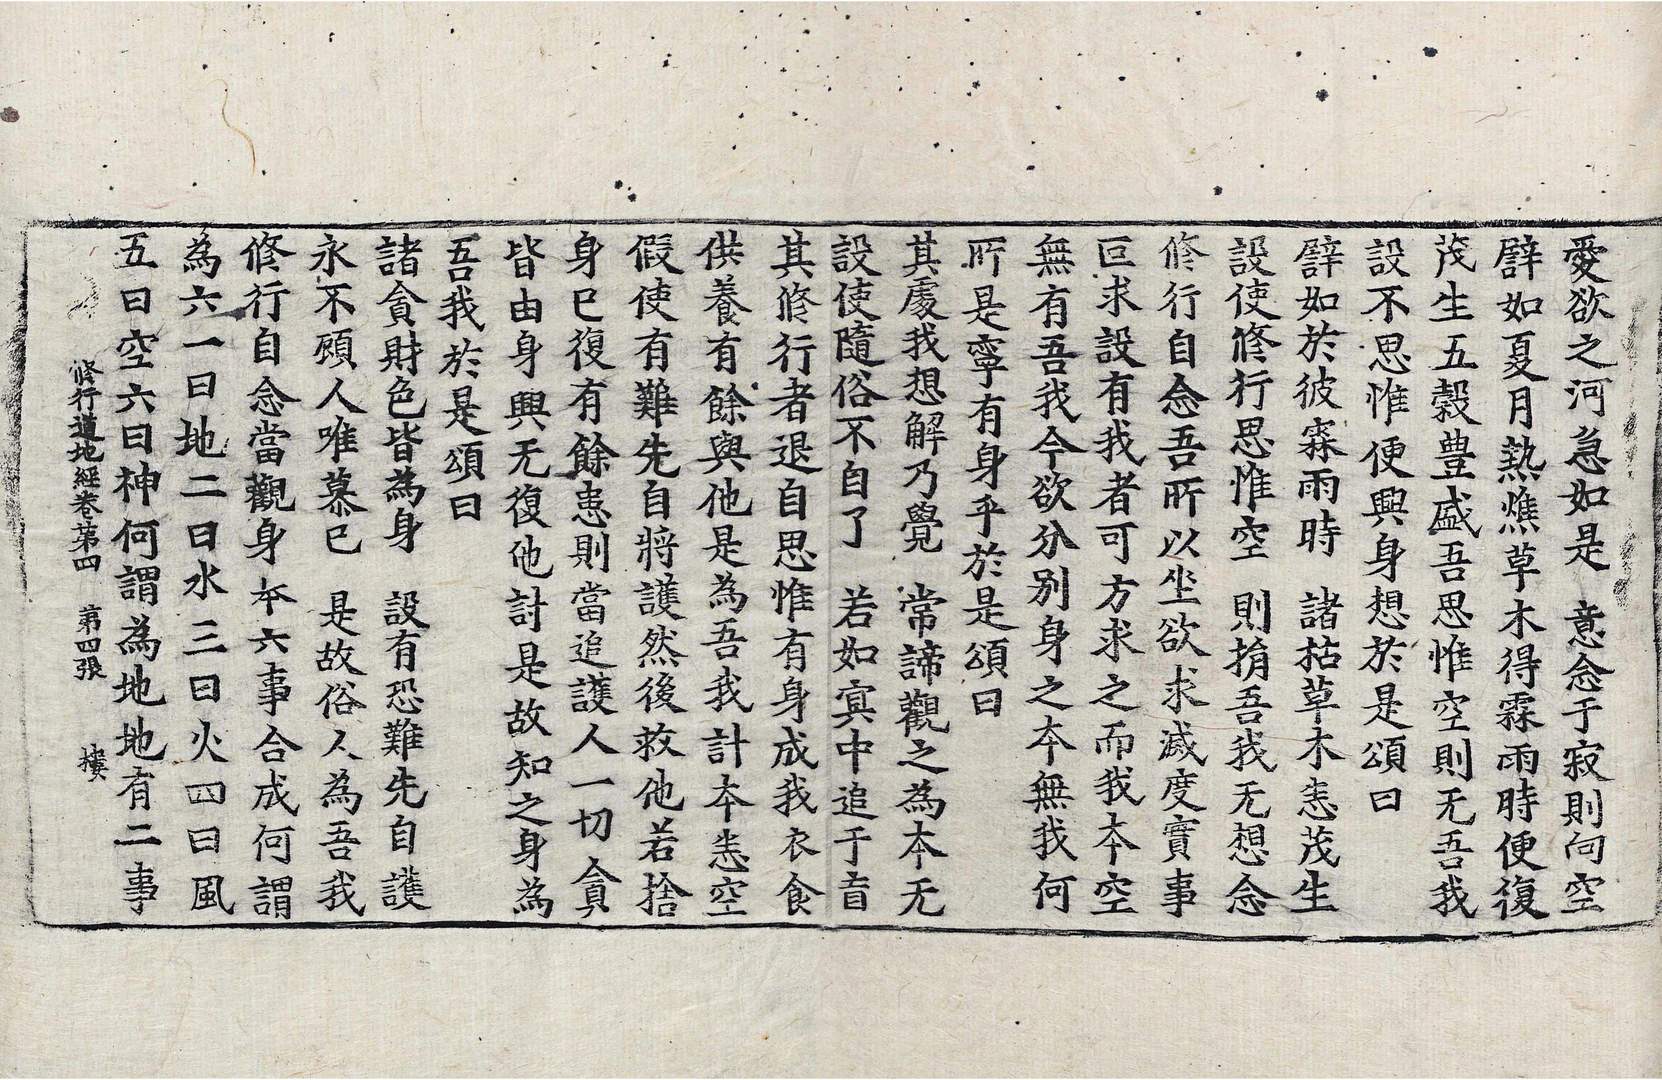 愛欲之河急如是　意念于寂則向空
譬如夏月熱燋草木得霖雨時便復
茂生五糓豊盛吾思惟空則无吾我
設不思惟便興身想於是頌曰
譬如於彼霖雨時　諸枯草木悉茂生
設使修行思惟空　則捐吾我无想念
修行自念吾所以坐欲求滅度實事
叵求設有我者可方求之而我本空
無有吾我今欲分別身之本無我何
所是寧有身乎於是頌曰
其處我想解乃覺　常諦觀之為本无
設使隨俗不自了　若如㝠中追于盲
其修行者退自思惟有身成我衣食
供養有餘與他是為吾我計本悉空
假使有難先自將護然後救他若捨
身已復有餘患則當追護人一切貪
皆由身興无復他討是故知之身為
吾我於是頌曰
諸貪財色皆為身　設有恐難先自護
永不顧人唯慕已　是故俗人為吾我
修行自念當觀身本六事合成何謂
為六一曰地二曰水三曰火四曰風
五曰空六曰神何謂為地地有二事
修行道地經卷第四　第四張　樓